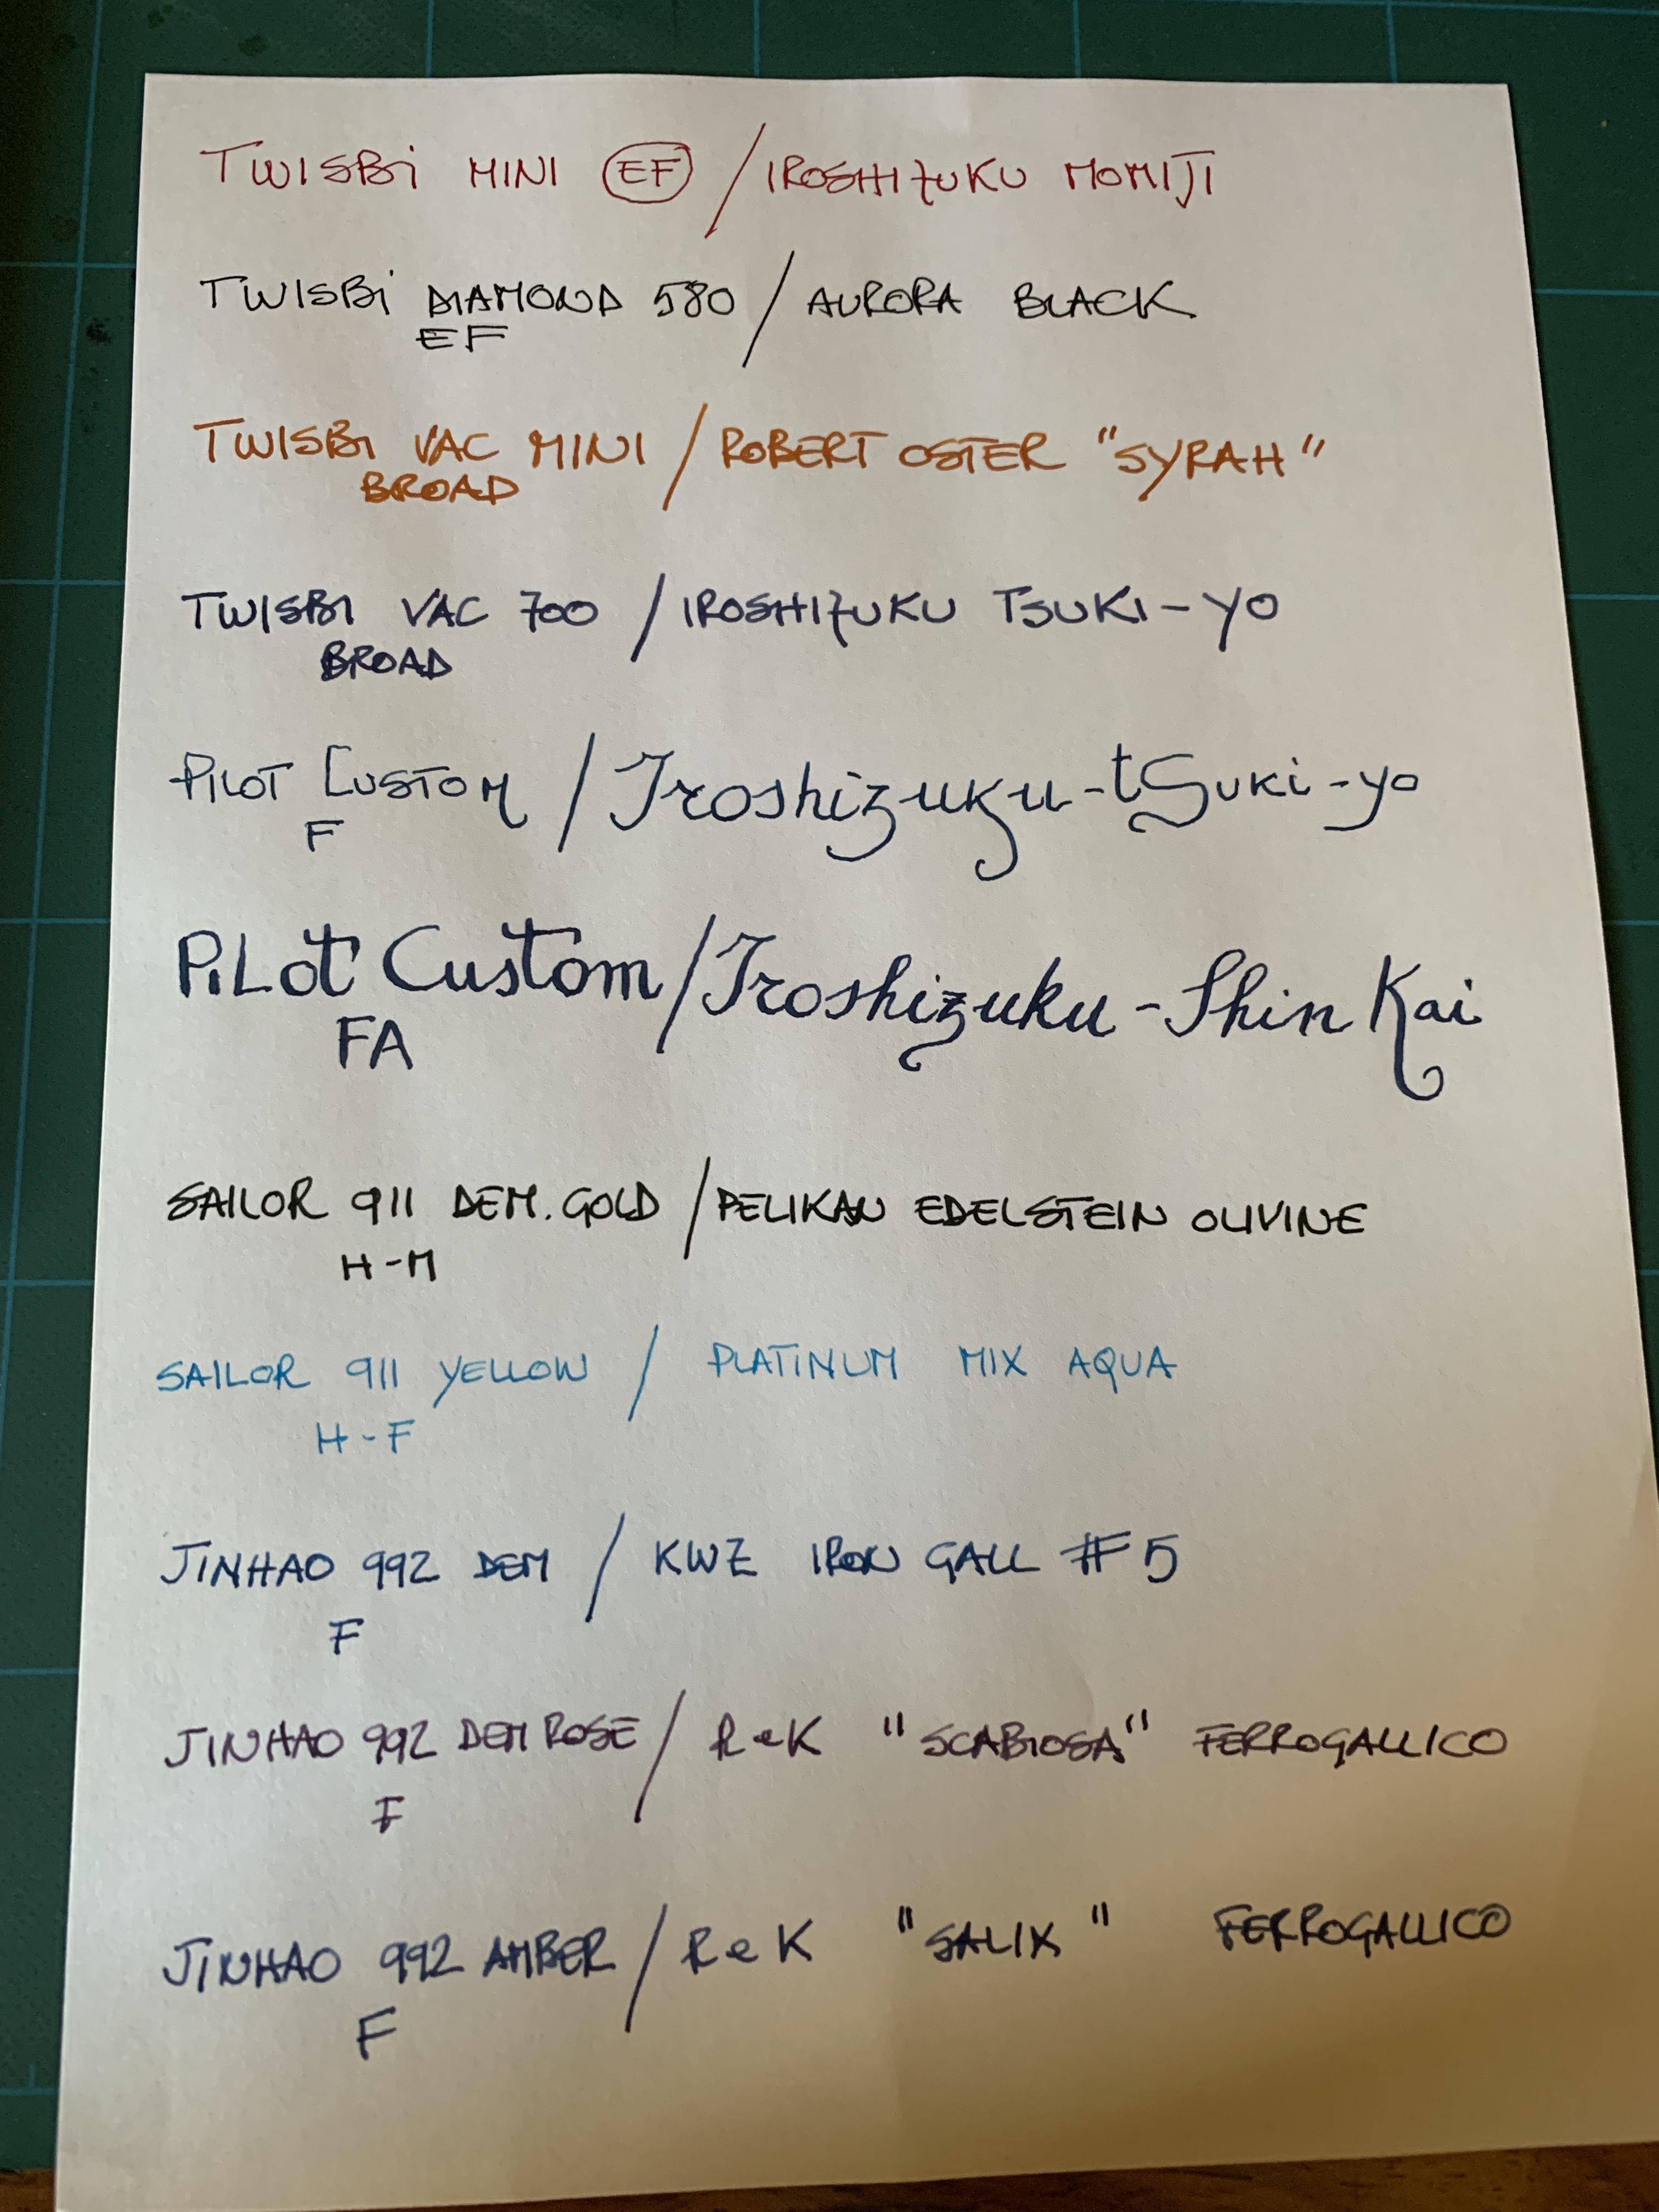 TWISBi MINI EF / IROSHIZUKU MOMIJI
TWISBi DIAMOND 580 / AURORA BLACK
EF
TWISBI VAC MINI / ROBERT OSTER "SYRAH"
BROAD
TWISBI VAC 700 / IROSHIZUKU TSUKI-YO
BROAD
PILOT CUSTOM / Iroshizuku-tSuKi-yo
F
PiLot Custom / Iroshizuku - Shin Kai
FA
SAILOR 911 DEM. GOLD / PELIKAN EDELSTEIN OLIVINE
H-M
SAILOR 911 YELLOW / PLATINUM MIX AQUA
H-F
JINHAO 992 DEM / KWZ IRON GALL #5
F
JINHAO 992 DEM ROSE / ReK "SCABIOSA" FERROGALLICO
F
JINHAO 992 AMBER / ReK "SALIX" FERROGALLICO
F